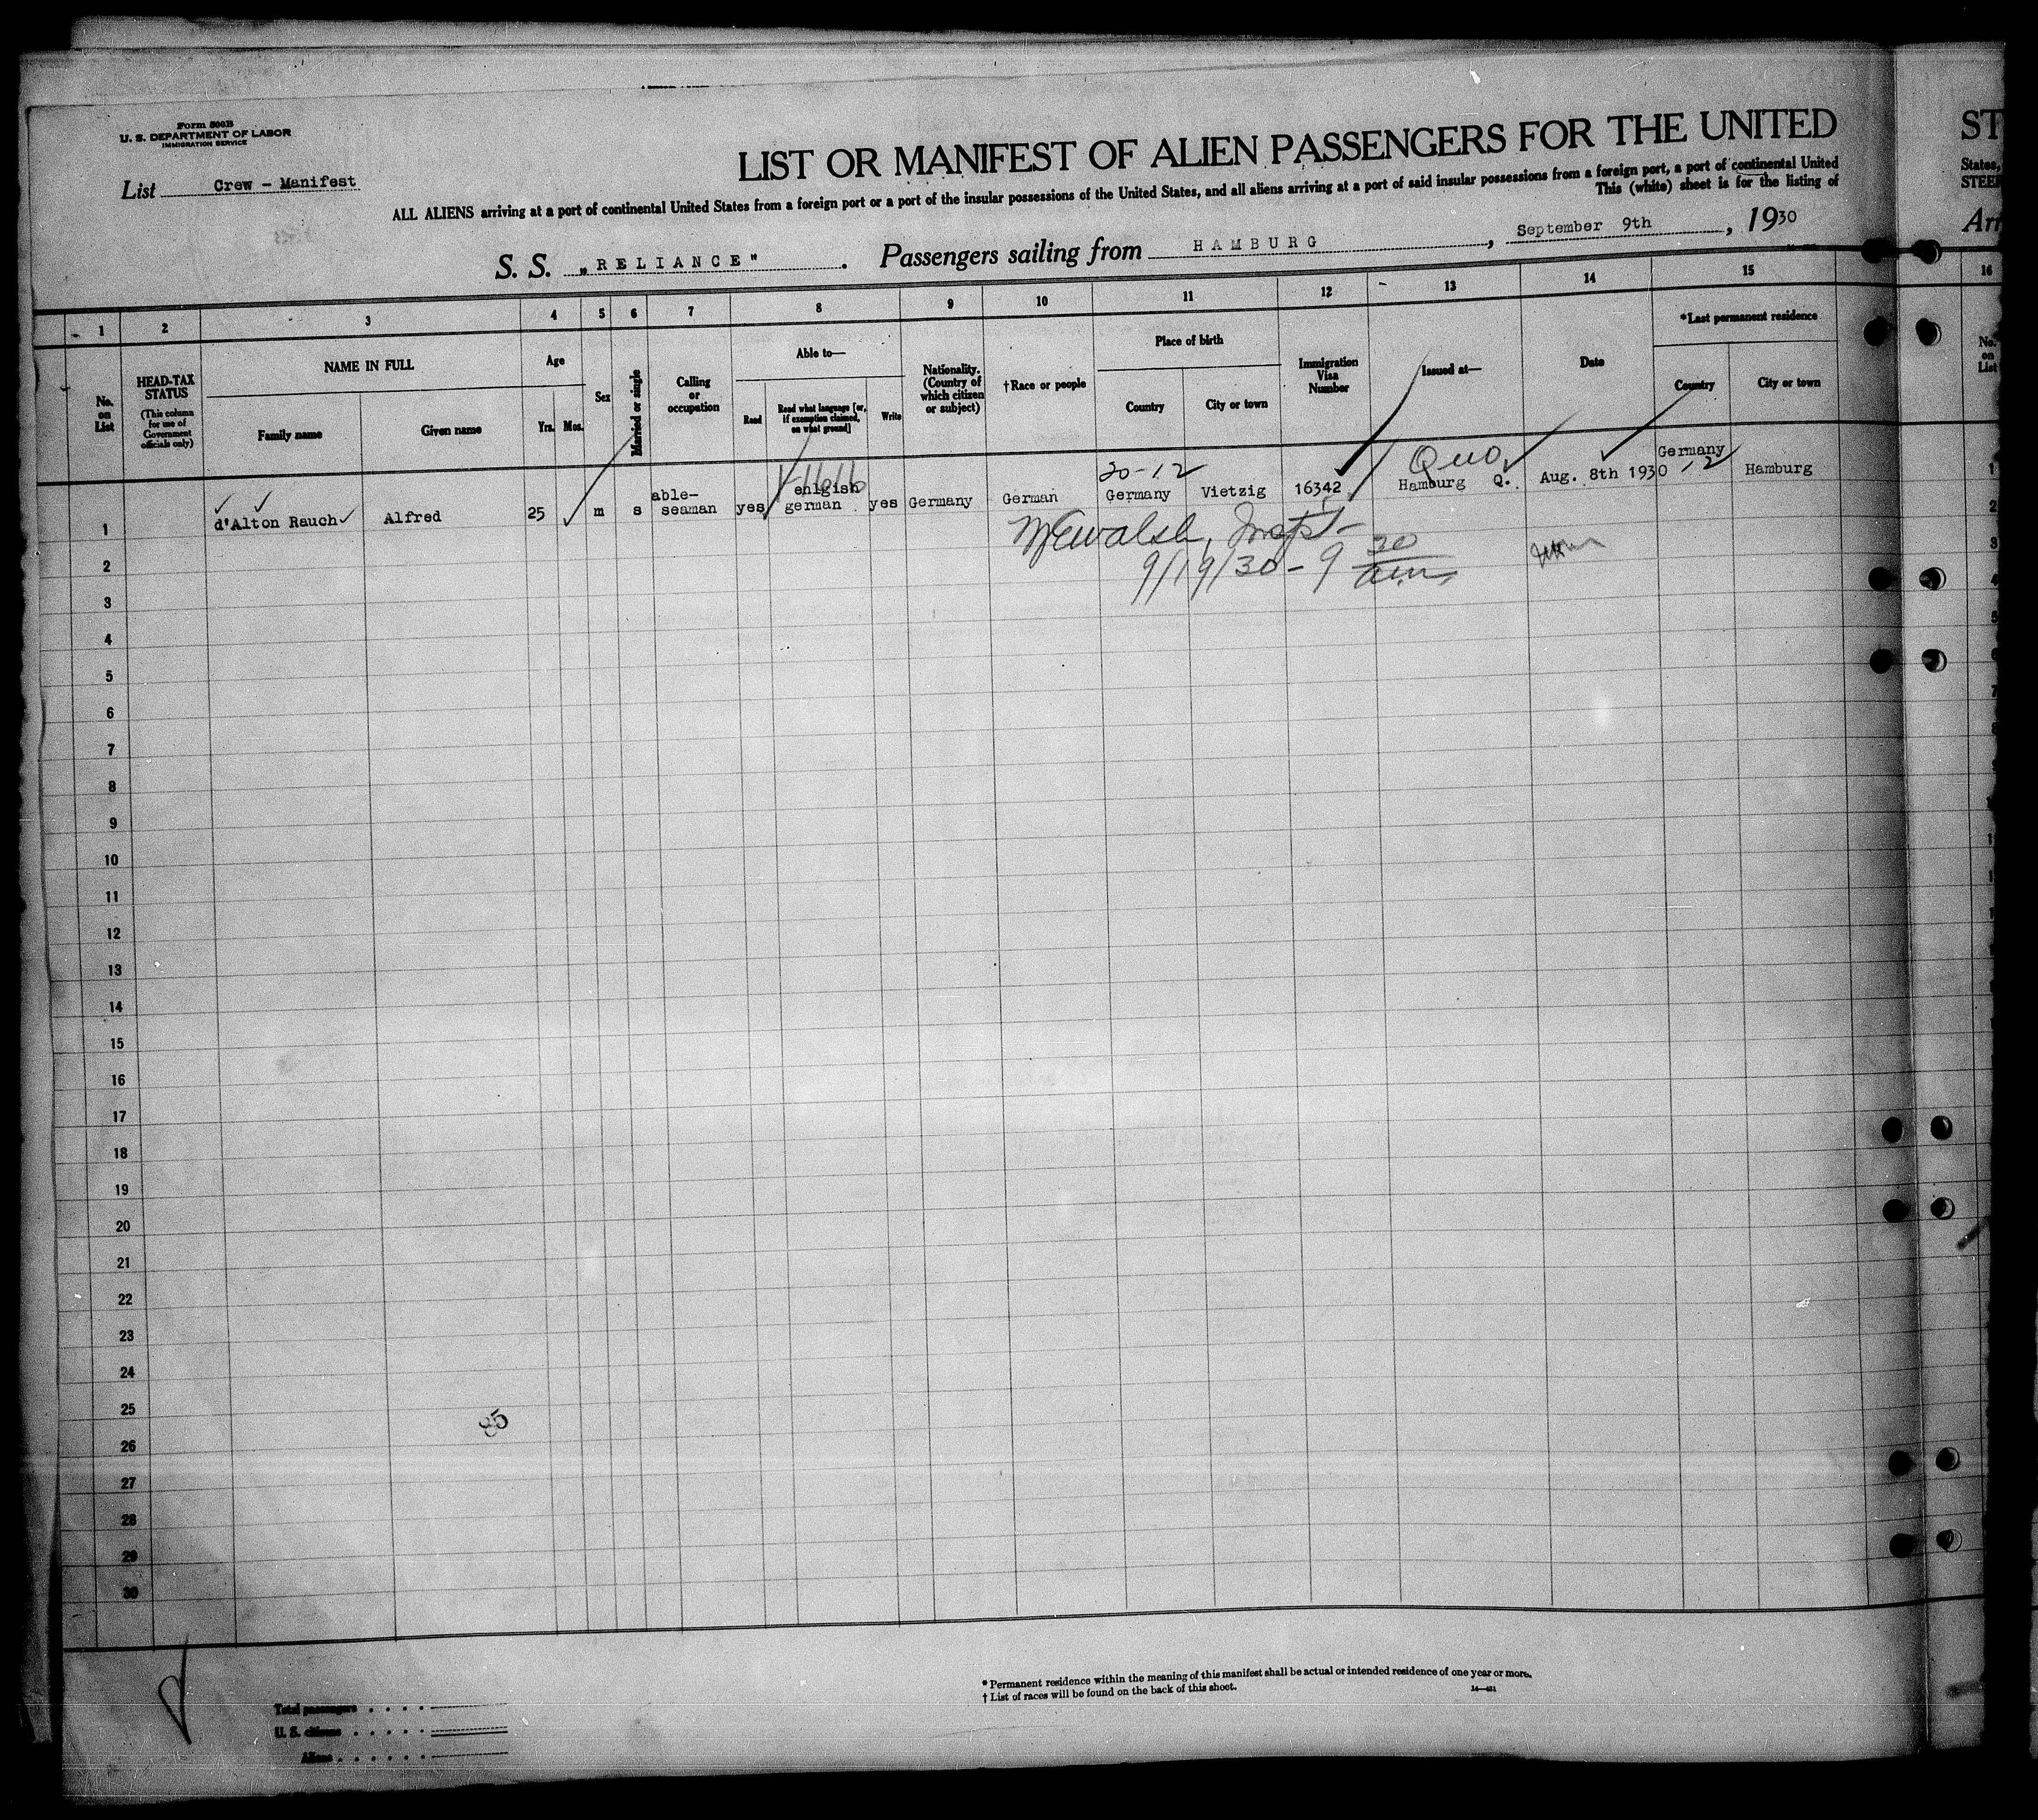 Form 500B
U. S. DEPARTMENT OF LABOR
IMMIGRATION SERVICE
List Crew - Manifest
LIST OR MANIFEST OF ALIEN PASSENGERS FOR THE UNITED
ALL ALIENS arriving at a port of continental United States from a foreign port or a port of the insular possessions of the United States, and all aliens arriving at a port of said insular possessions from a foreign port, a port of continental United
This (white) sheet is for the listing of
S. S. „RELIANCE". Passengers sailing from HAMBURG, September 9th, 1930
ST
States,
STEER
Arr
1 2 3 4 5 6 7 8 9 10 11 12 13 14 15 16
No. on List
HEAD-TAX STATUS
(This column for use of Government officials only)
NAME IN FULL
Family name
Given name
Age
Yrs. Mos.
Sex
Married or single
Calling or occupation
Able to—
Read
Read what language [or, if exemption claimed, on what ground]
Write
Nationality. (Country of which citizen or subject)
†Race or people
Place of birth
Country
City or town
Immigration Visa Number
Issued at—
Date
*Last permanent residence
Country
City or town
No. on List
20-12
Quo
12
1 d'Alton Rauch Alfred 25 m s able-seaman yes enlgish german yes Germany German Germany Vietzig 16342 Hamburg Q. Aug. 8th 1930 Germany Hamburg
Walsh, Inspt-
9/19/30 - 9 30 am
2
3
4
5
6
7
8
9
10
11
12
13
14
15
16
17
18
19
20
21
22
23
24
25
85
26
27
28
29
30
* Permanent residence within the meaning of this manifest shall be actual or intended residence of one year or more.
† List of races will be found on the back of this sheet.
Total passengers
U. S. citizens
Aliens